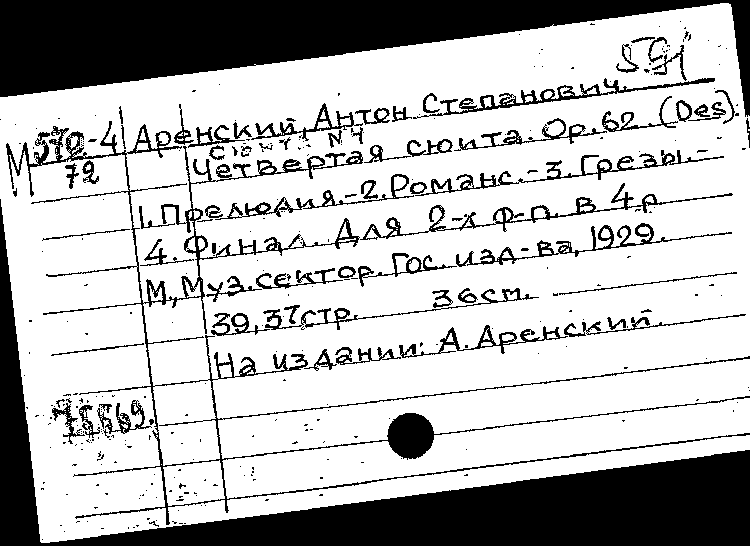 5.91
М 572-4 Аренский, Антон Степанович.
72
Сюита N 4
Четвертая сюита. Ор.62. (Des).
1. Прелюдия.-2. Романс.-3. Грезы.-
4. Финал. Для 2-х ф-п. в 4 р.
М., Муз. сектор. Гос. изд-ва, 1929.
39, 37 стр. 36 см.
На издании: А. Аренский.